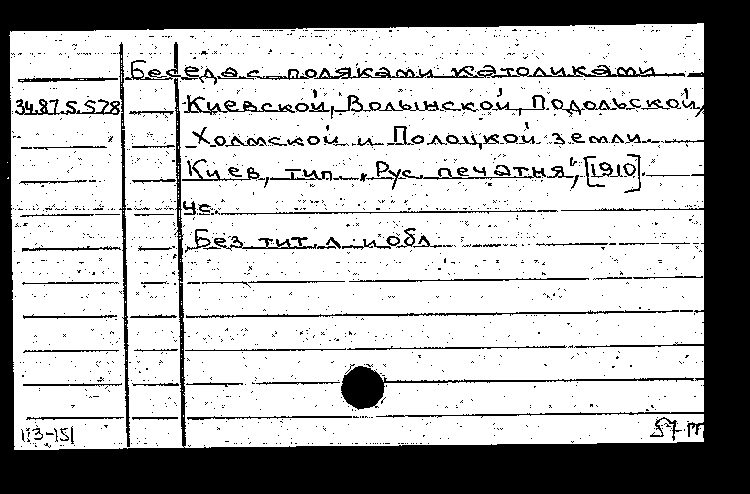 Беседа с поляками католиками
34.87.5.578 Киевской, Волынской, Подольской,
Холмской и Полоцкой земли.
Киев, тип. „Рус. печатня", [1910].
4с.
Без тит. л. и обл.
113-151